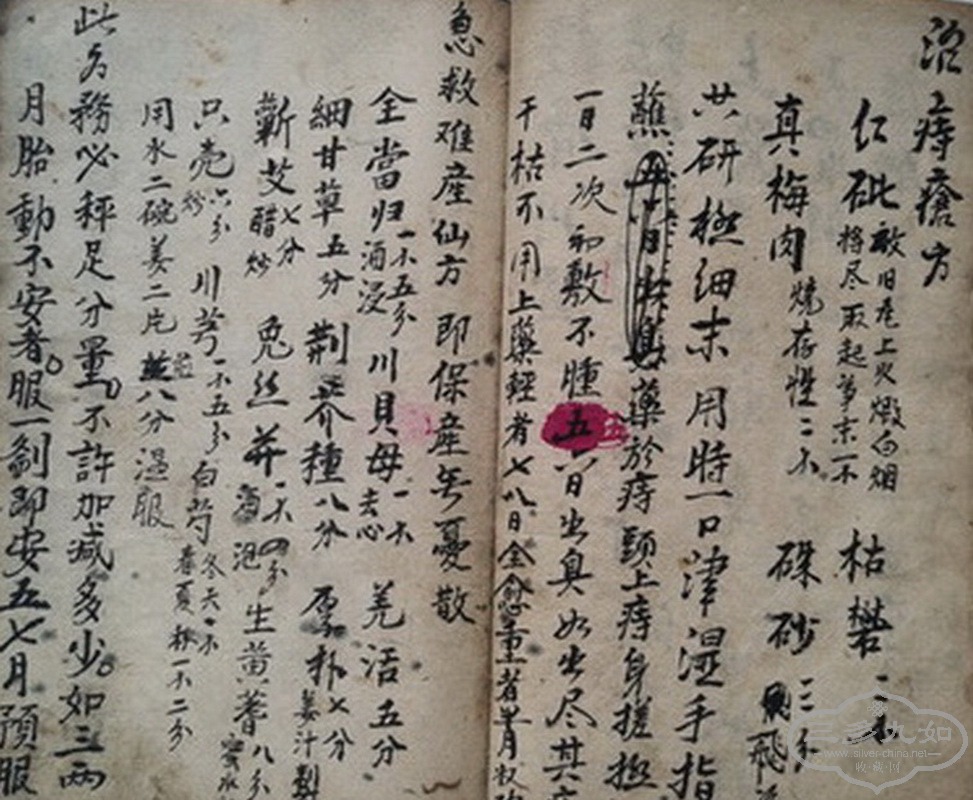 治痔瘡方
仁砒 敲旧瓦上火煅白烟將尽取起爭末一不 枯礬 二不
真梅肉 燒存性二不 硃砂 三分 飛
共研極細末用時一口津湿手指
蘸藥於痔頭上痔身搓
一日二次初敷不腫五六日出臭水出尽其
干枯不用上藥輕者七八日全愈重者半月收
急救难產仙方即保產無憂散
全當归 一不五分酒浸 川貝母 一不去心 羌活五分
細甘草五分 荆芥種八分 厚朴七分 姜汁製
蘄艾 七分醋炒 兎丝并 一不四分酒泡 生黄蓍八分 蜜水
只壳 六分炒 川芎 一不五分 白芍 冬天一不春夏秋一不二分
用水二碗姜二片煎八分温服
此方務必秤足分量。不許加减多少。如三两
月胎動不安者。服一劑即安五七月預服
三多九如
www.silver-china.net
收·藏·网